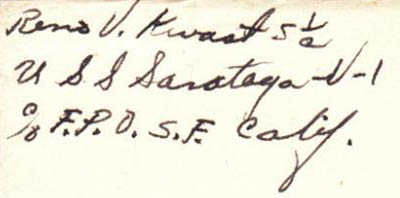 Reno V. Kwast S 1/2
U S S Saratoga - V-1
c/o F.P.O. S.F. Calif.